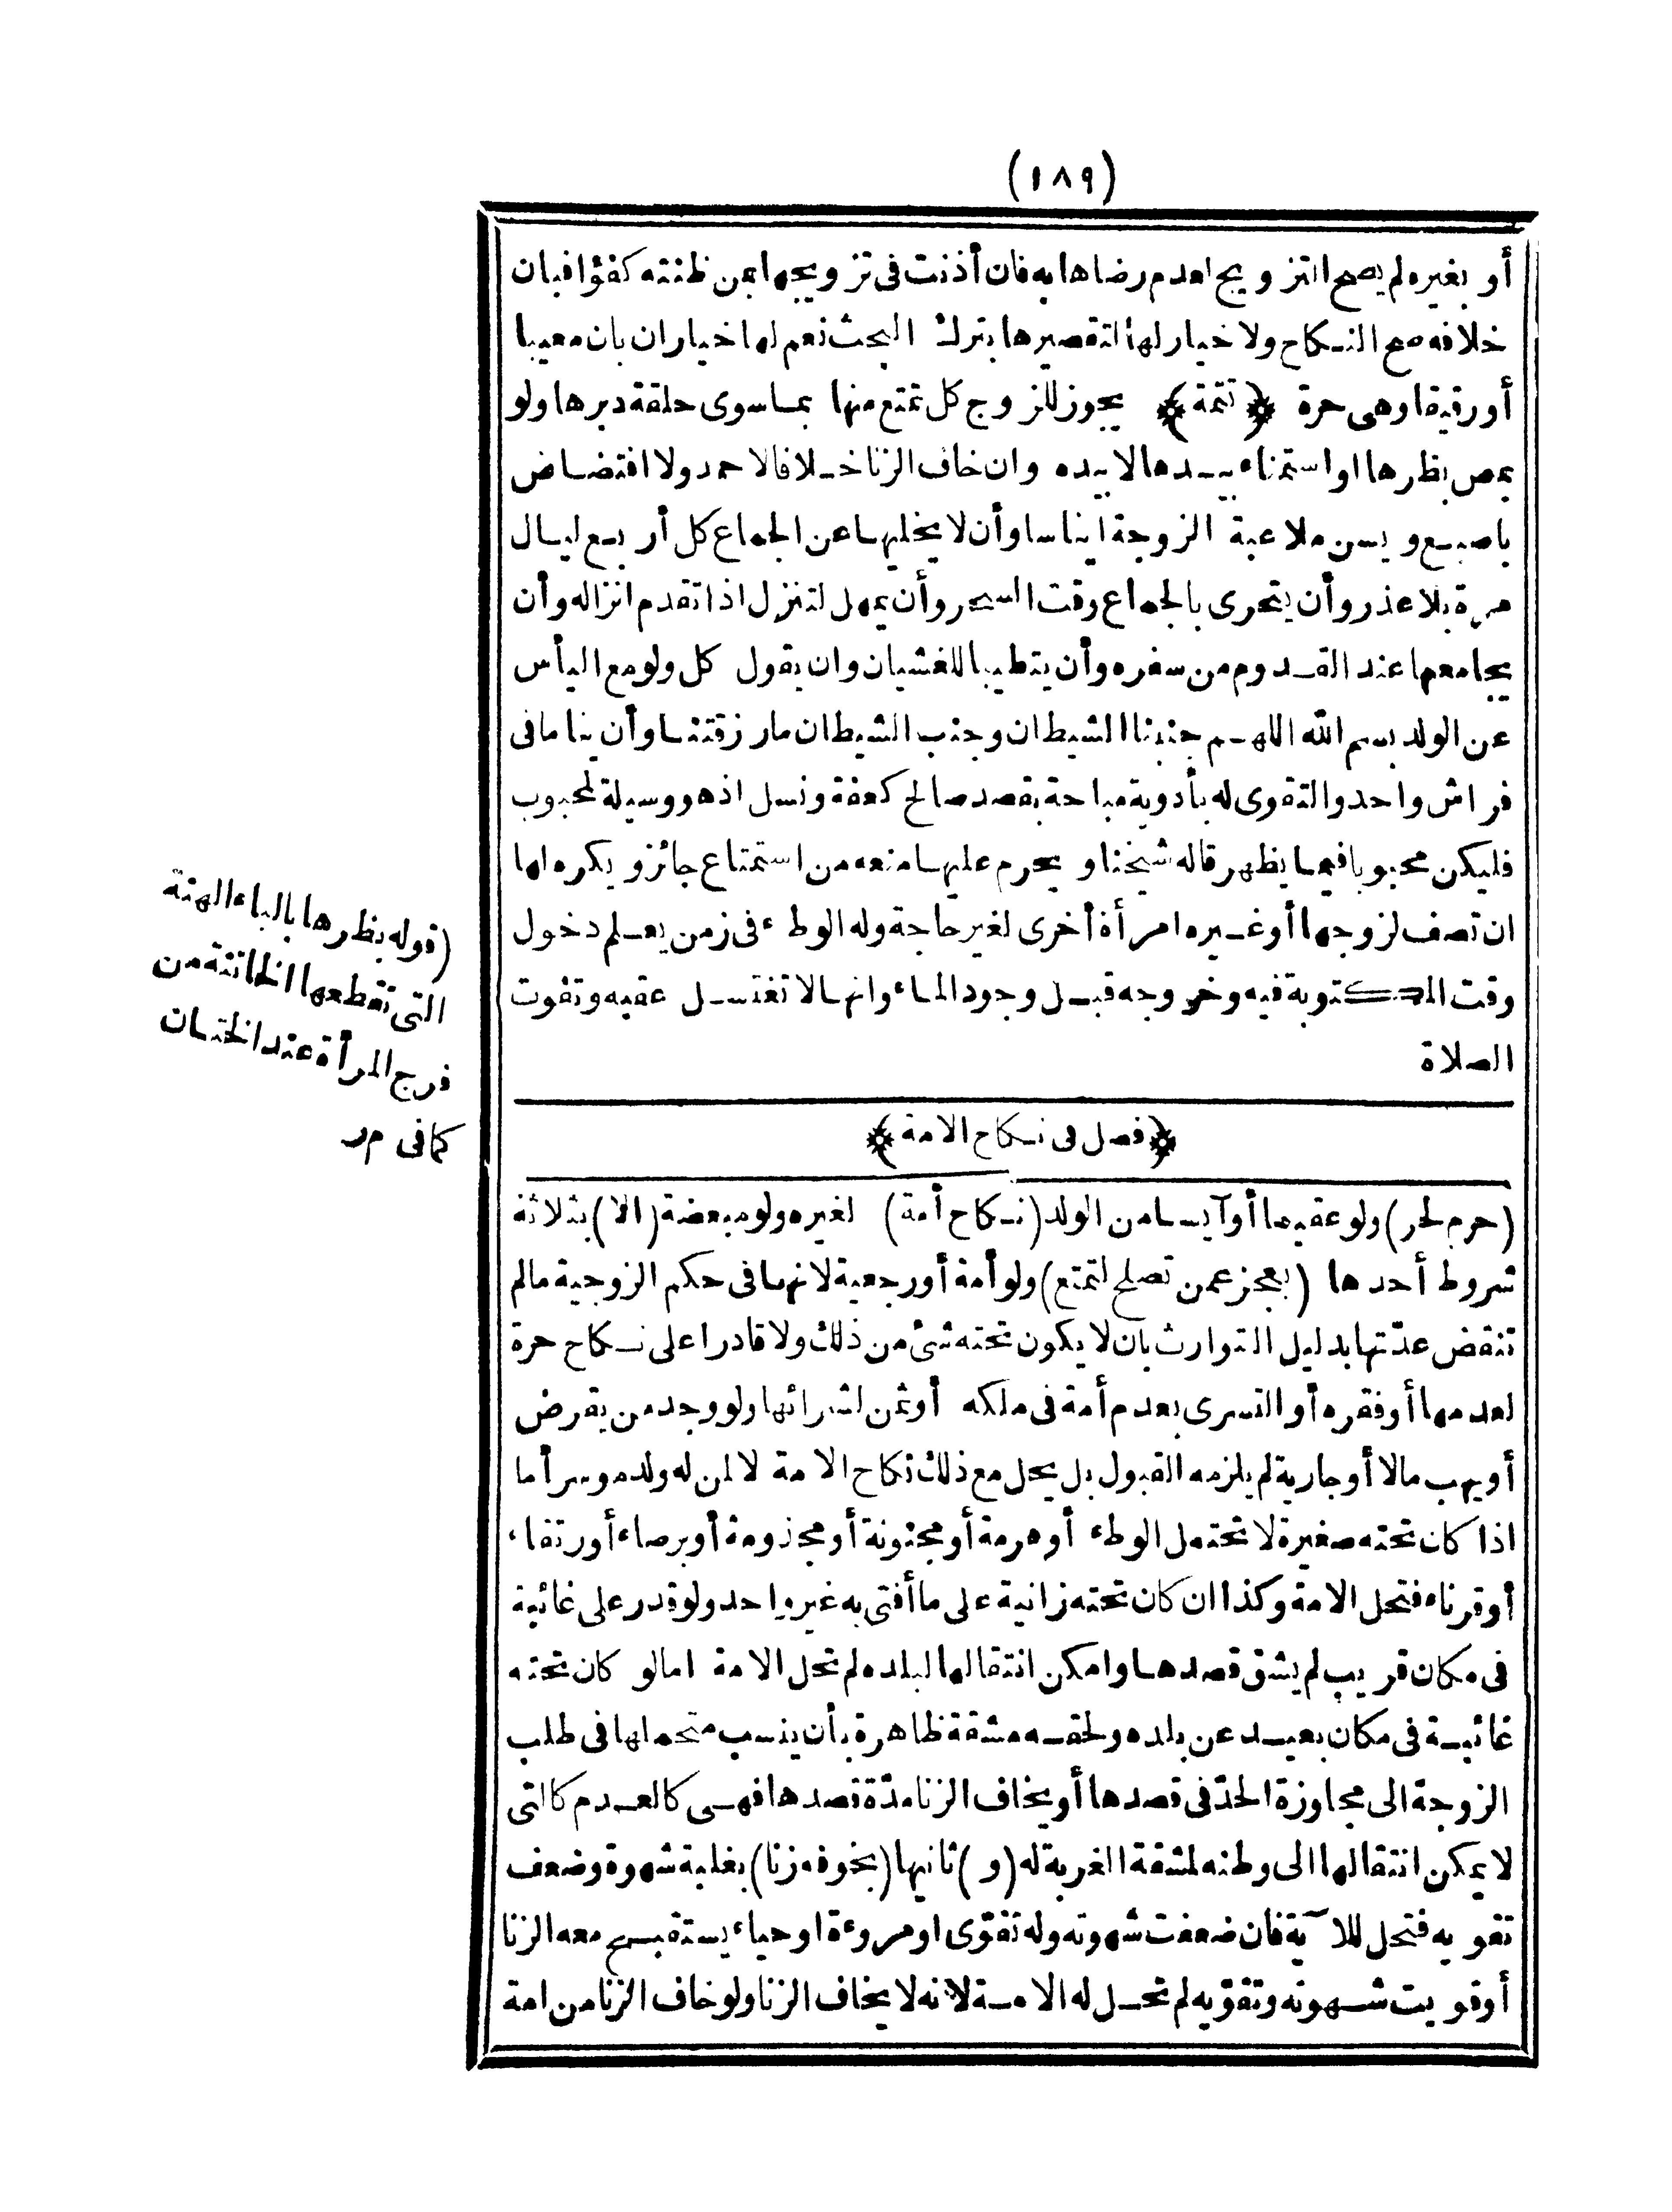 (١٨٩)
أو بغيره لم يصح التزويج لعدم رضاها به فان أذنت فى تزويجها بمن ظنته كفؤا فبان
خلافه صح النكاح ولا خيار لها لتقصيرها بترك البحث نعم لها خيار ان بان معيبا
أو رقيقا وهى حرة ﴿تتمة﴾ يجوز للزوج كل تمتع منها بما سوى حلقة دبرها ولو
بمص بظرها او استمناء بيدها لا بيده وان خاف الزنا خلافا لاحمد ولا افتضاض
باصبع ويسن ملاعبة الزوجة ايناسا وأن لا يخليها عن الجماع كل أربع ليال
مرة بلا عذر وأن يتحرى بالجماع وقت السحر وأن يمهل لتنزل اذا تقدم انزاله وأن
يجامعها عند القدوم من سفره وأن يتطيبا للغشيان وان يقول كل ولو مع اليأس
عن الولد بسم الله اللهم جنبنا الشيطان وجنب الشيطان ما رزقتنا وأن يناما فى
فراش واحد والتقوى له بأدوية مباحة بقصد صالح كعفة ونسل اذ هو وسيلة لمحبوب
فليكن محبوبا فيما يظهر قاله شيخنا ويحرم عليها منعه من استمتاع جائز ويكره لها
ان تصف لزوجها أو غيره امرأة أخرى لغير حاجة وله الوطء فى زمن يعلم دخول
وقت المكتوبة فيه وخروجه قبل وجود الماء وانها لا تغتسل عقبه وتفوت
الصلاة
(قوله بظرها بالباء الهنة
التى تقطعها الخاتنة من
فرج المرأة عند الختان
كما فى م ر
﴿فصل فى نكاح الامة﴾
(حرم لحر) ولو عقيما أو آيسا من الولد (نكاح أمة) لغيره ولو مبعضة (الا) بثلاثة
شروط أحدها (بعجز عمن تصلح لتمتع) ولو أمة أو رجعية لانها فى حكم الزوجية ما لم
تنقض عدّتها بدليل التوارث بان لا يكون تحته شئ من ذلك ولا قادرا على نكاح حرة
لعدمها أو فقره أو التسرى بعدم أمة فى ملكه أو ثمن لشرائها ولو وجد من يقرض
أو يهب مالا أو جارية لم يلزمه القبول بل يحل مع ذلك نكاح الامة لا لمن له ولد موسر أما
اذا كان تحته صغيرة لا تحتمل الوطء أو هرمة أو مجنونة أو مجذومة أو برصاء أو رتقاء
أو قرناء فتحل الامة وكذا ان كان تحته زانية على ما أفتى به غير واحد ولو قدر على غائبة
فى مكان قريب لم يشق قصدها وامكن انتقالها لبلده لم تحل الامة اما لو كان تحته
غائبة فى مكان بعيد عن بلده ولحقه مشقة ظاهرة بأن ينسب متحملها فى طلب
الزوجة الى مجاوزة الحدّ فى قصدها أو يخاف الزنا مدّة قصدها فهى كالعدم كالتى
لا يمكن انتقالها الى وطنه لمشقة الغربة له (و) ثانيها (بخوفه زنا) بغلبة شهوة وضعف
تقويه فتحل للآية فان ضعفت شهوته وله تقوّى او مروءة او حياء يستقبح معه الزنا
أو قويت شهوته وتقوّيه لم تحل له الامة لانه لا يخاف الزنا ولو خاف الزنا من امة